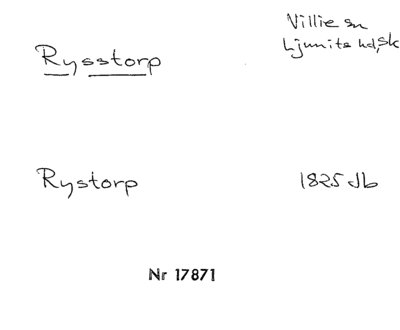 Rysstorp
Villie sn
Ljunits hd, Sk
Rystorp
1825 db
Nr 17871